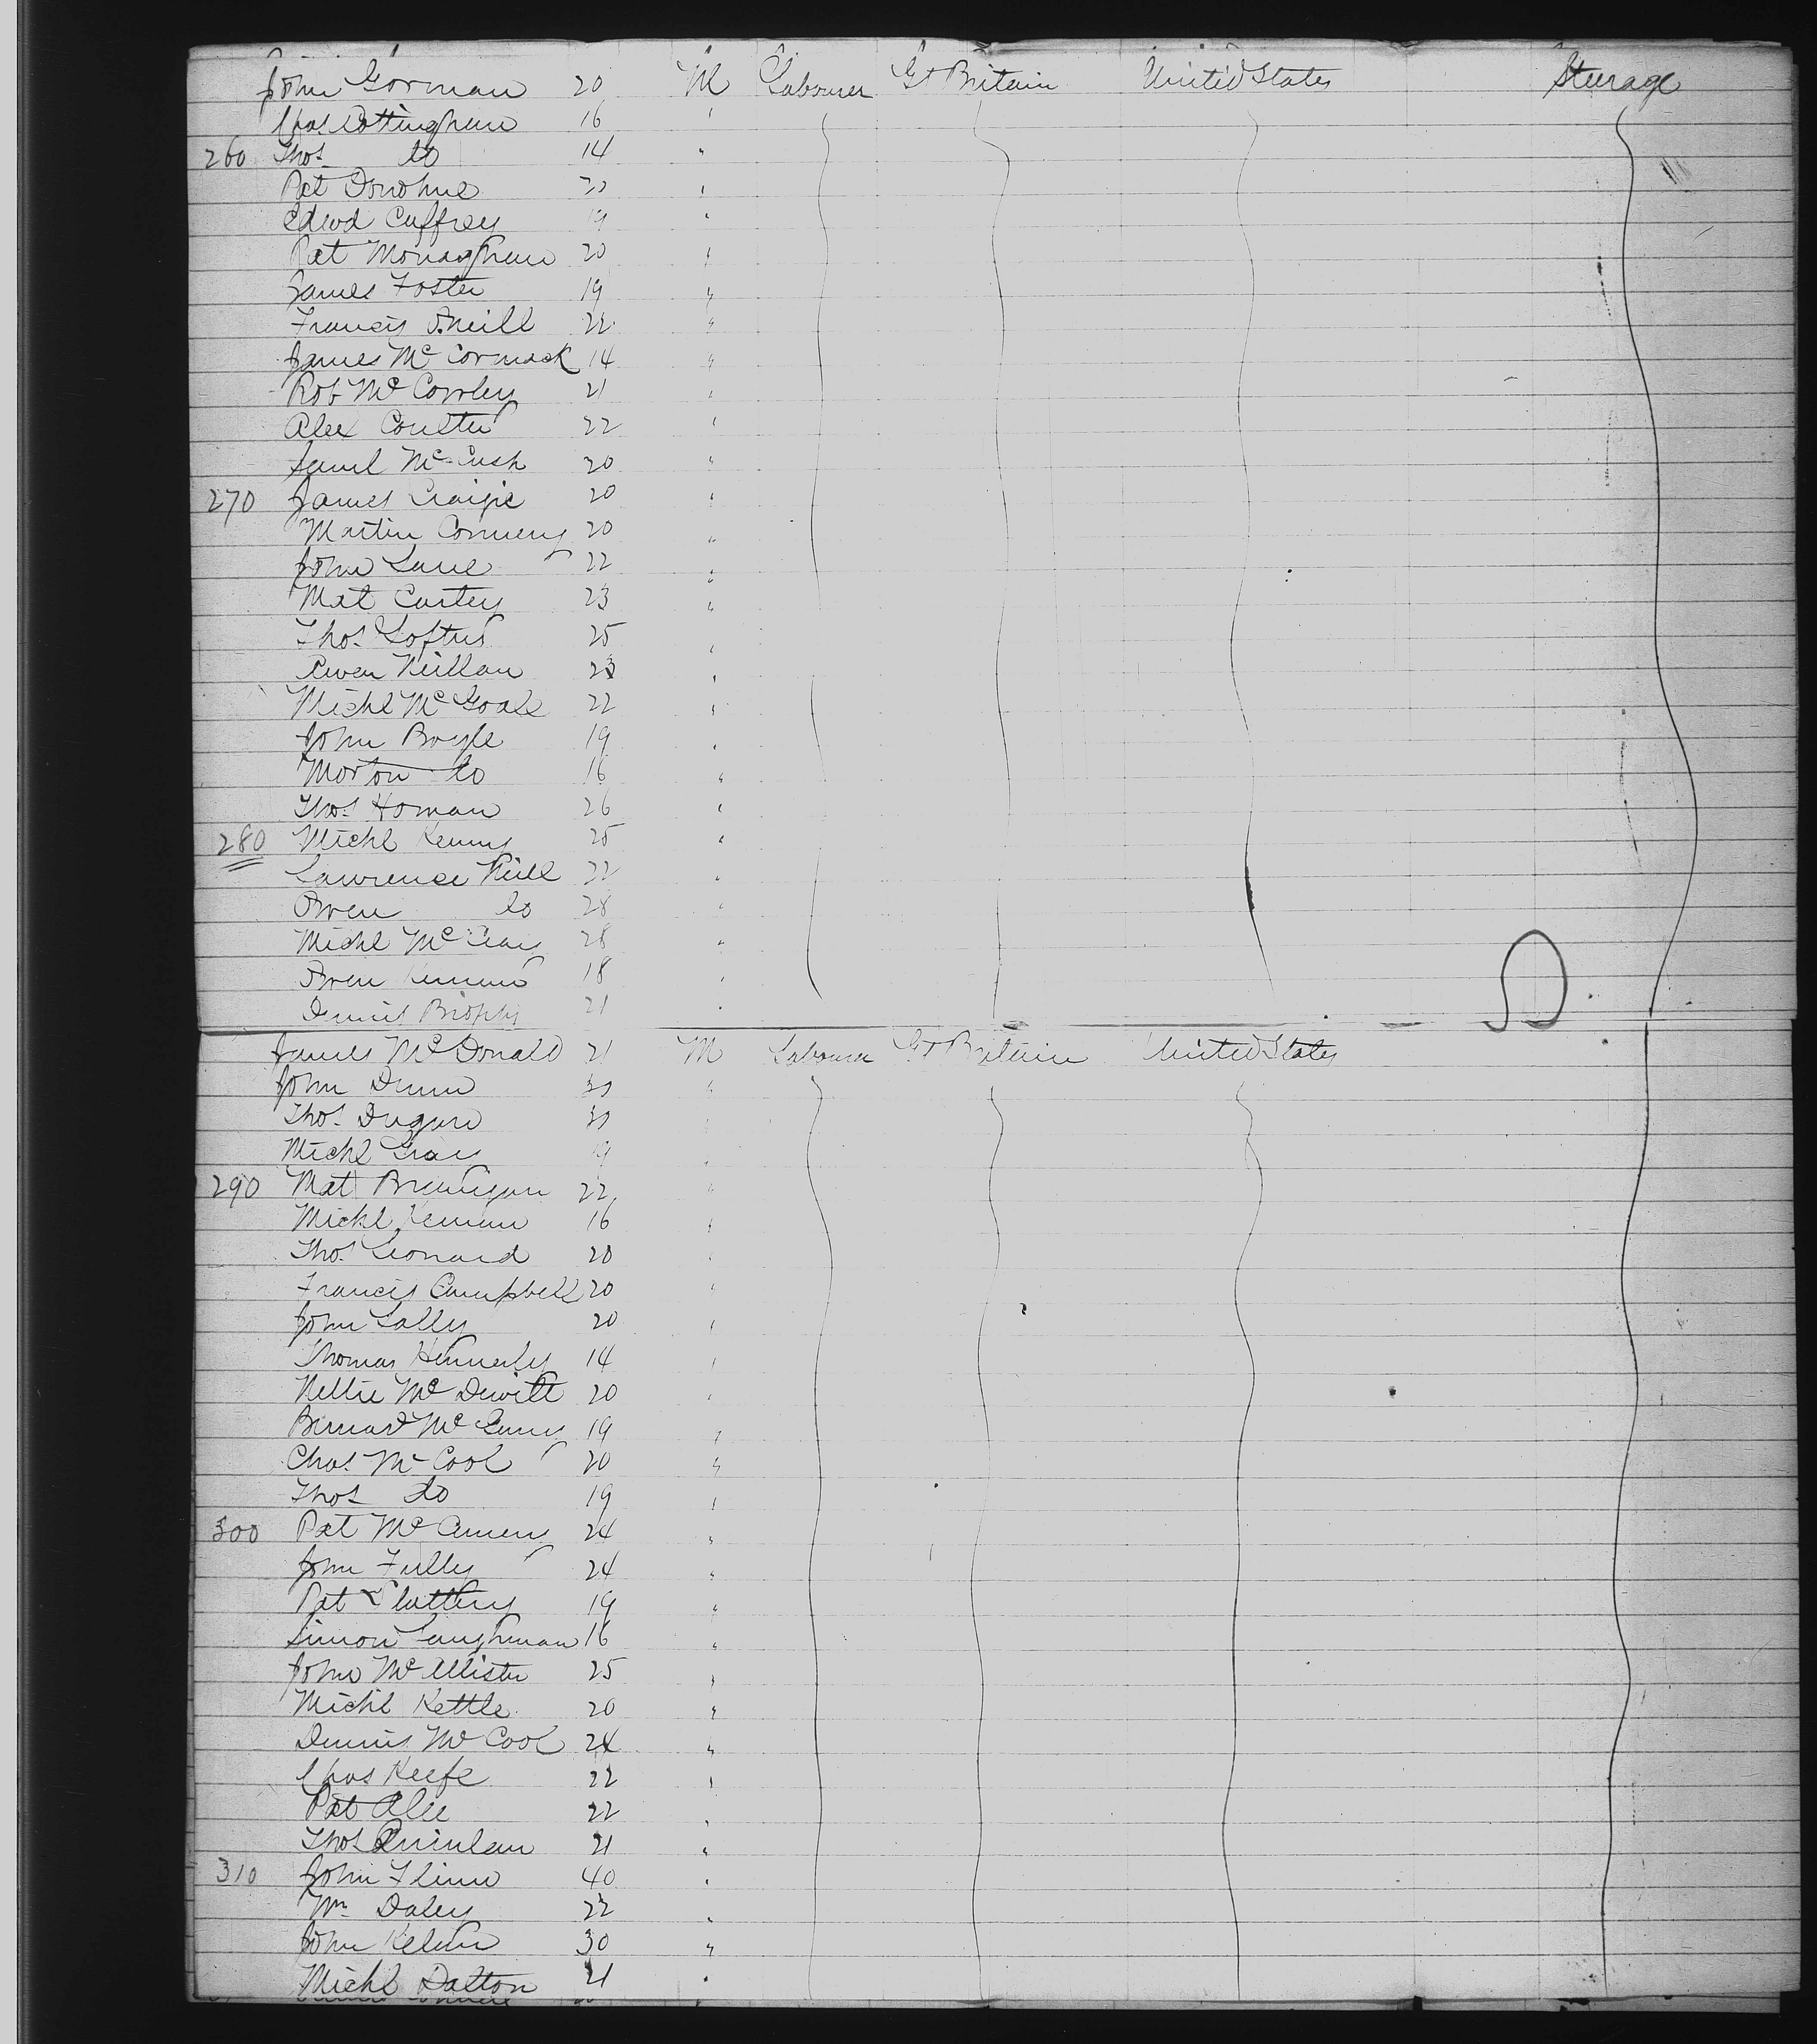 John Gorman 20 M Labourer Gt Britain United States Steerage
Chas Cottingham 16 "
260 Thos do 14 "
Pat Donohue 20 "
Edwd Caffrey 19 "
Pat Monaghan 20 "
James Foster 19 "
Francis O'Neill 22 "
James McCormack 14 "
Rob McCorley 21 "
Alex Coulter 22 "
Saml McCush 20 "
270 James Craigie 20 "
Martin Conmery 20 "
John Lane 22 "
Mat Carley 23 "
Thos Loftus 25 "
Neillan 23 "
Michl McGoale 22 "
John Boyle 19 "
Morton do 16 "
Thos Homan 26 "
280 Michl Kenny 25 "
Lawrence Neill 22 "
Owen do 28 "
Michl McCray 28 "
Owen Kiernan 18 "
Dennis Brophy 21 "
James McDonald 21 M Labourer Gt Britain United States
John Dunn "
Thos Dugan "
Michl Gray 19 "
290 Mat Brannigan 22 "
Michl Kernan 16 "
Thos Leonard 20 "
Francis Campbell 20 "
John Lally 20 "
Thomas Kennerley 14 "
Nellie McDevitt 20 "
Bernard McGinny 19 "
Chas McCool 20 "
Thos do 19 "
300 Pat McAmeny 24 "
John Fully 24 "
Pat Slattery 19 "
Simon Laughman 16 "
John McAllister 25 "
Michl Kettle 20 "
Dennis McCool 24 "
Chas Keefe 22 "
Pat 22 "
Thos Quinlan 21 "
310 John Flinn 40 "
Wm Daley 22 "
John 30 "
Michl Dalton 21 "